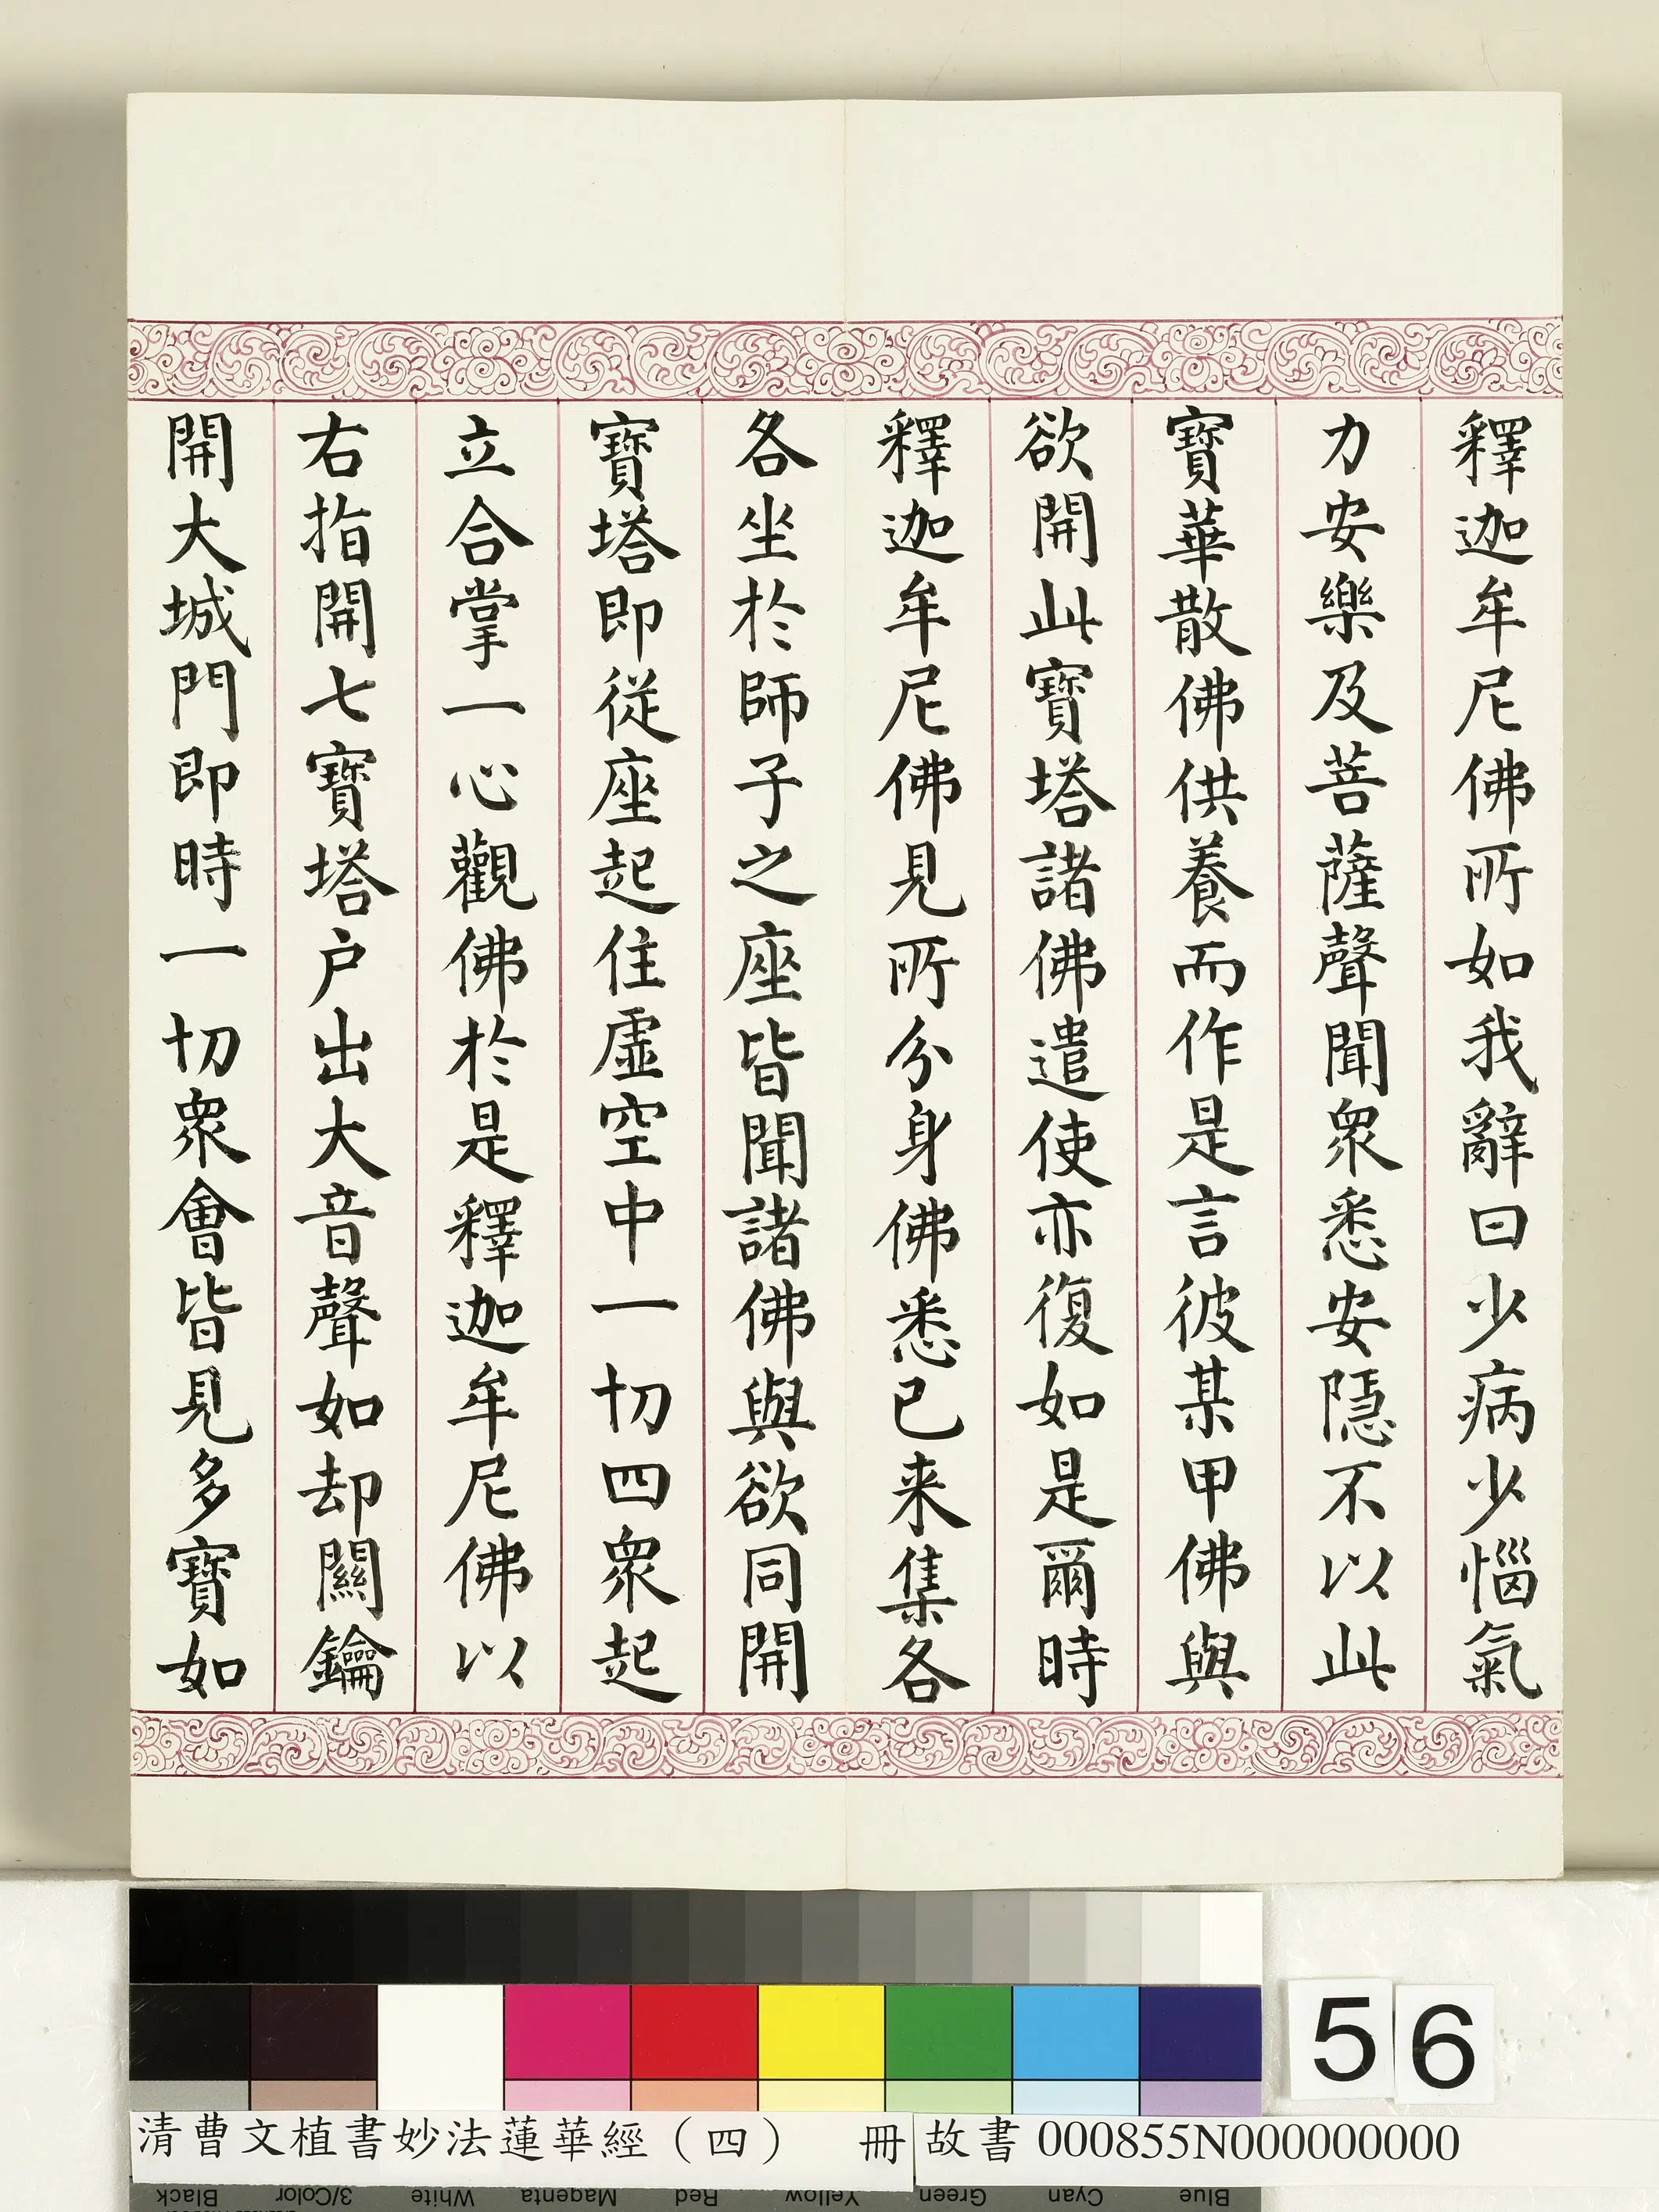 釋迦牟尼佛所如我辭曰少病少惱氣
力安樂及菩薩聲聞衆悉安隱不以此
寶華散佛供養而作是言彼某甲佛與
欲開此寶塔諸佛遣使亦復如是爾時
釋迦牟尼佛見所分身佛悉已来集各
各坐於師子之座皆聞諸佛與欲同開
寶塔即從座起住虛空中一切四衆起
立合掌一心觀佛於是釋迦牟尼佛以
右指開七寶塔户出大音聲如却關鑰
開大城門即時一切衆會皆見多寶如
56
清曹文植書妙法蓮華經（四） 冊
故書 000855N000000000
Black 3/Color White Magenta Red Yellow Green Cyan Blue